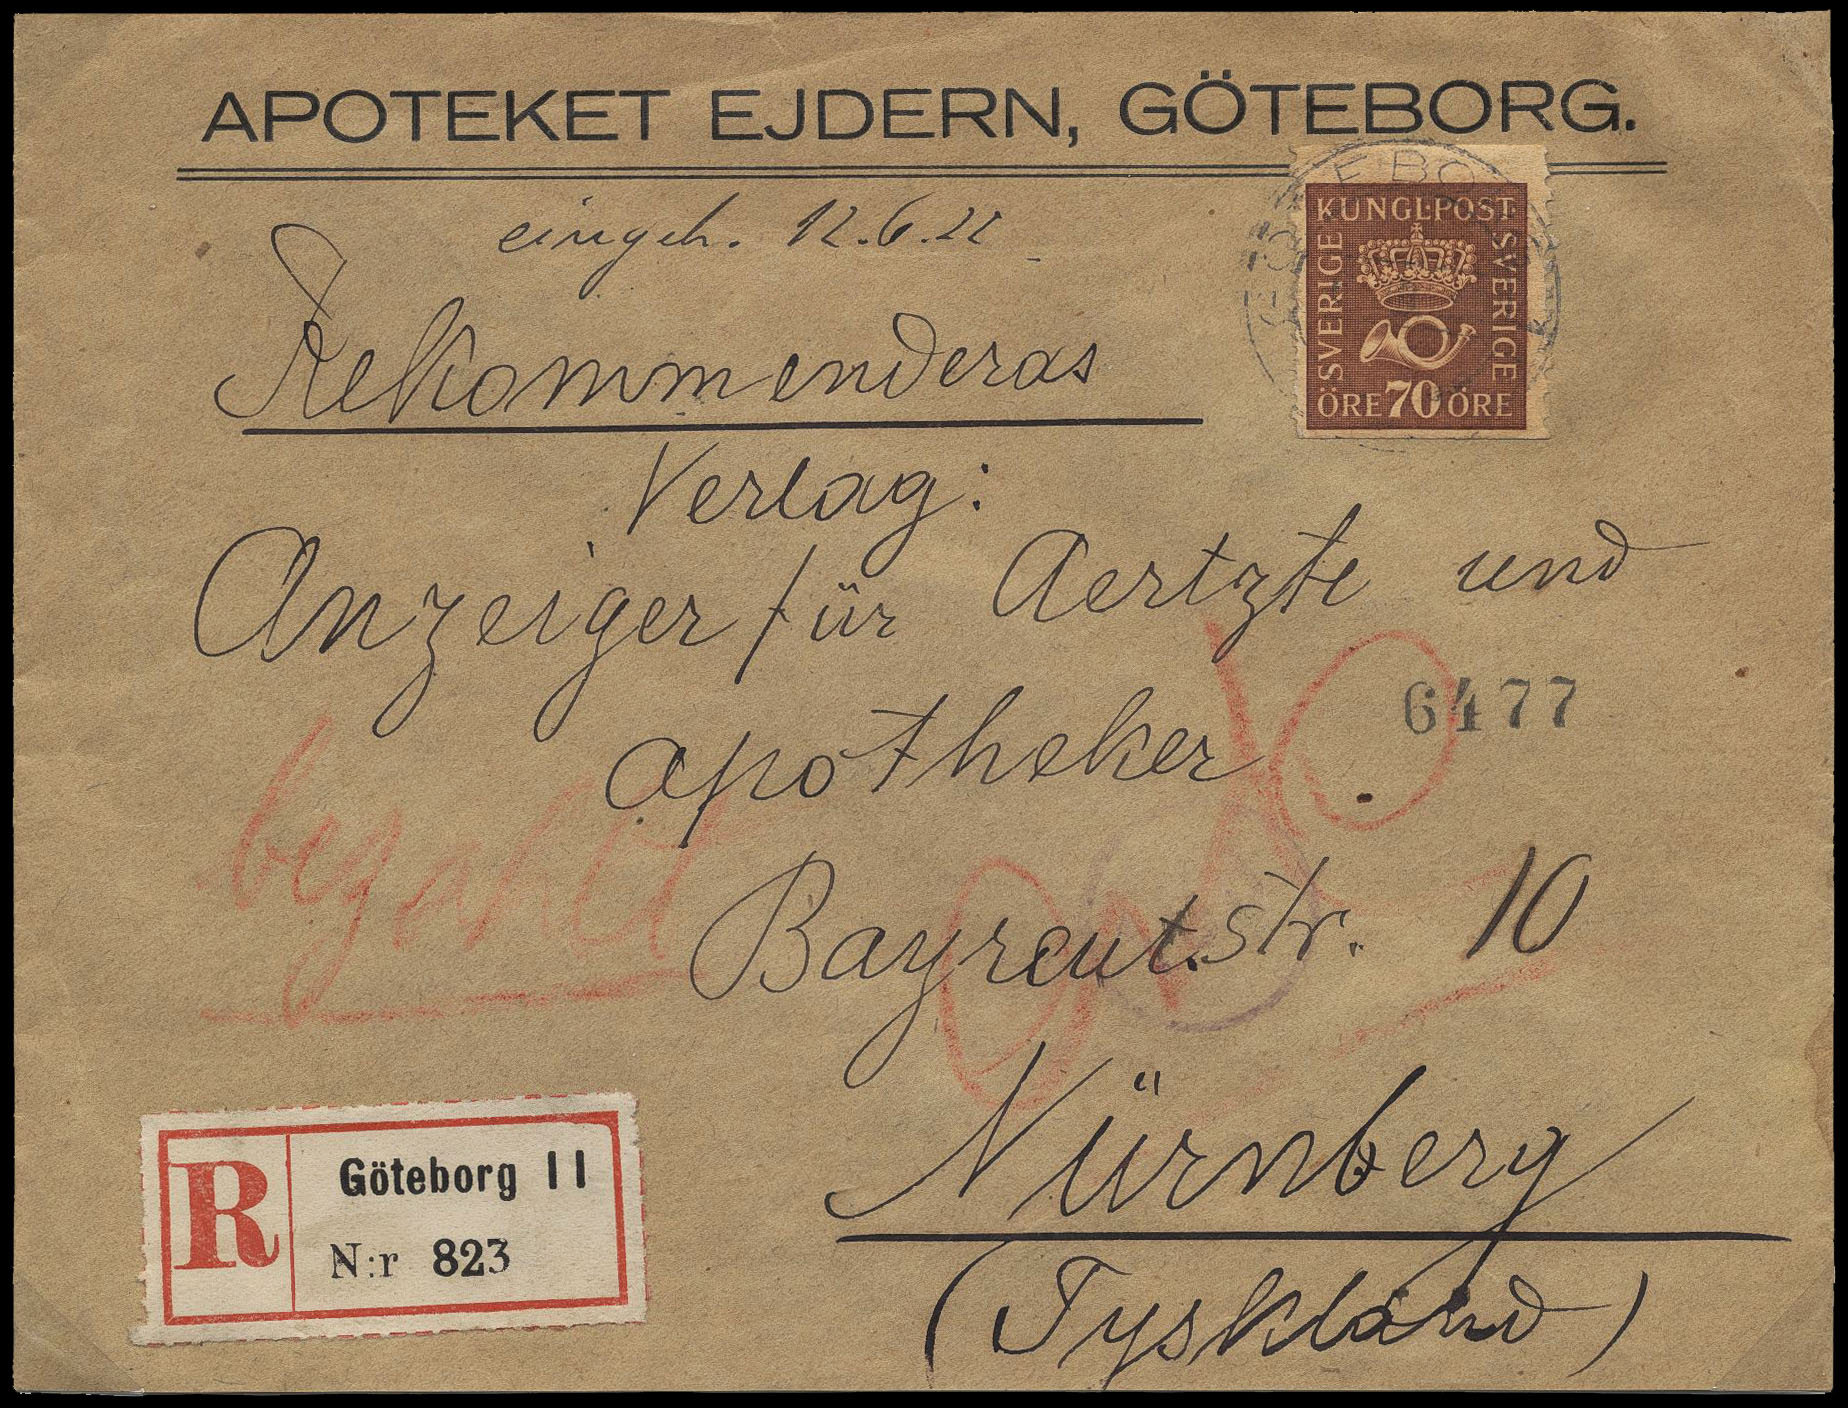 APOTEKET EJDERN, GÖTEBORG.
eingeh. 12.6.22
KUNGL·POST
SVERIGE
SVERIGE
ÖRE 70 ÖRE
Rekommenderas
Verlag:
Anzeiger für Aertzte und
6477
apotheker
bezahlt
Bayreut.str. 10
Nürnberg
(Tyskland)
R
Göteborg 11
N:r 823